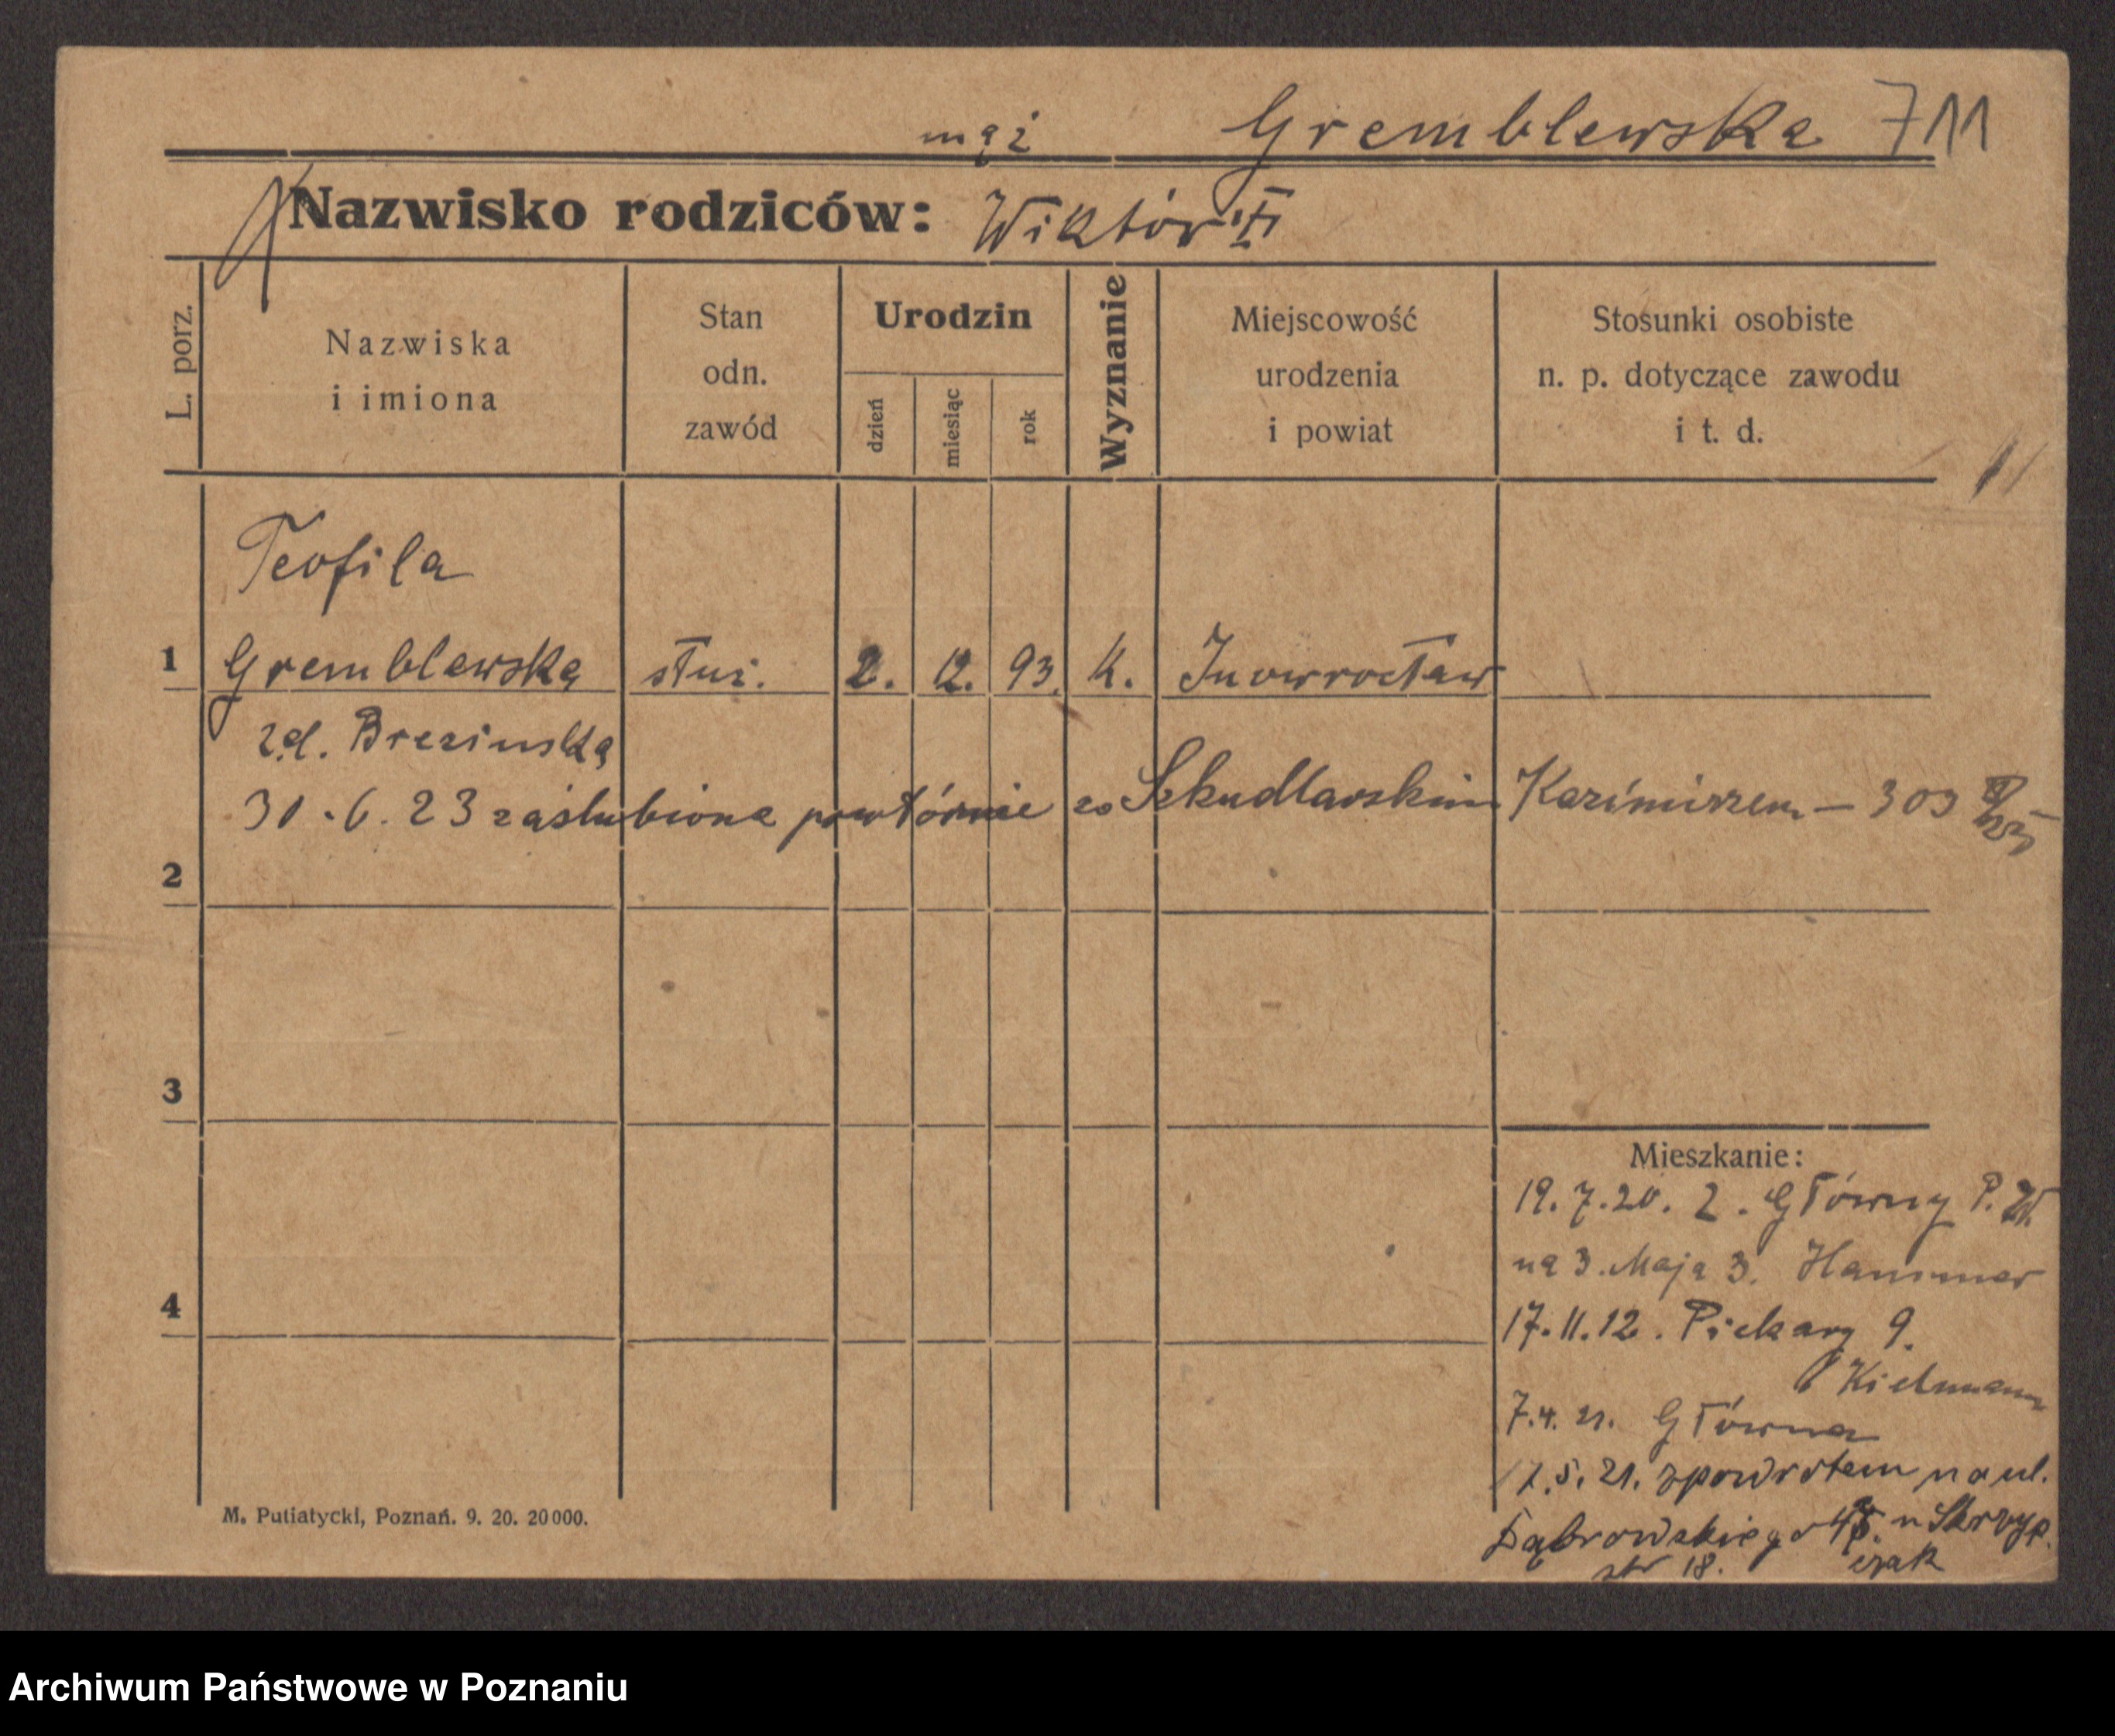 mąż Gremblewska 711
Nazwisko rodziców: Wiktór
L. porz.
Nazwiska
i imiona
Stan
odn.
zawód
Urodzin
dzień
miesiąc
rok
Wyznanie
Miejscowość
urodzenia
i powiat
Stosunki osobiste
n. p. dotyczące zawodu
i t. d.
Teofila
1 Gremblewska służ. 2. 12. 93. k. Inowrocław
zd. Brezinska
30.6.23 zaślubiona powtórnie ze Szkudlarskim Kazimirzem – 309
2
3
4
Mieszkanie:
19.7.20. z. Główny P.
na 3. Maja 3. Hammer
17.11.12. Piekary 9.
Kielmann
7.4.21. Główna
17.5.21. zpowrotem na ul.
Dąbrowskiego u Skrzyp.
czak
str 18.
M. Putiatycki, Poznań. 9. 20. 20000.
Archiwum Państwowe w Poznaniu